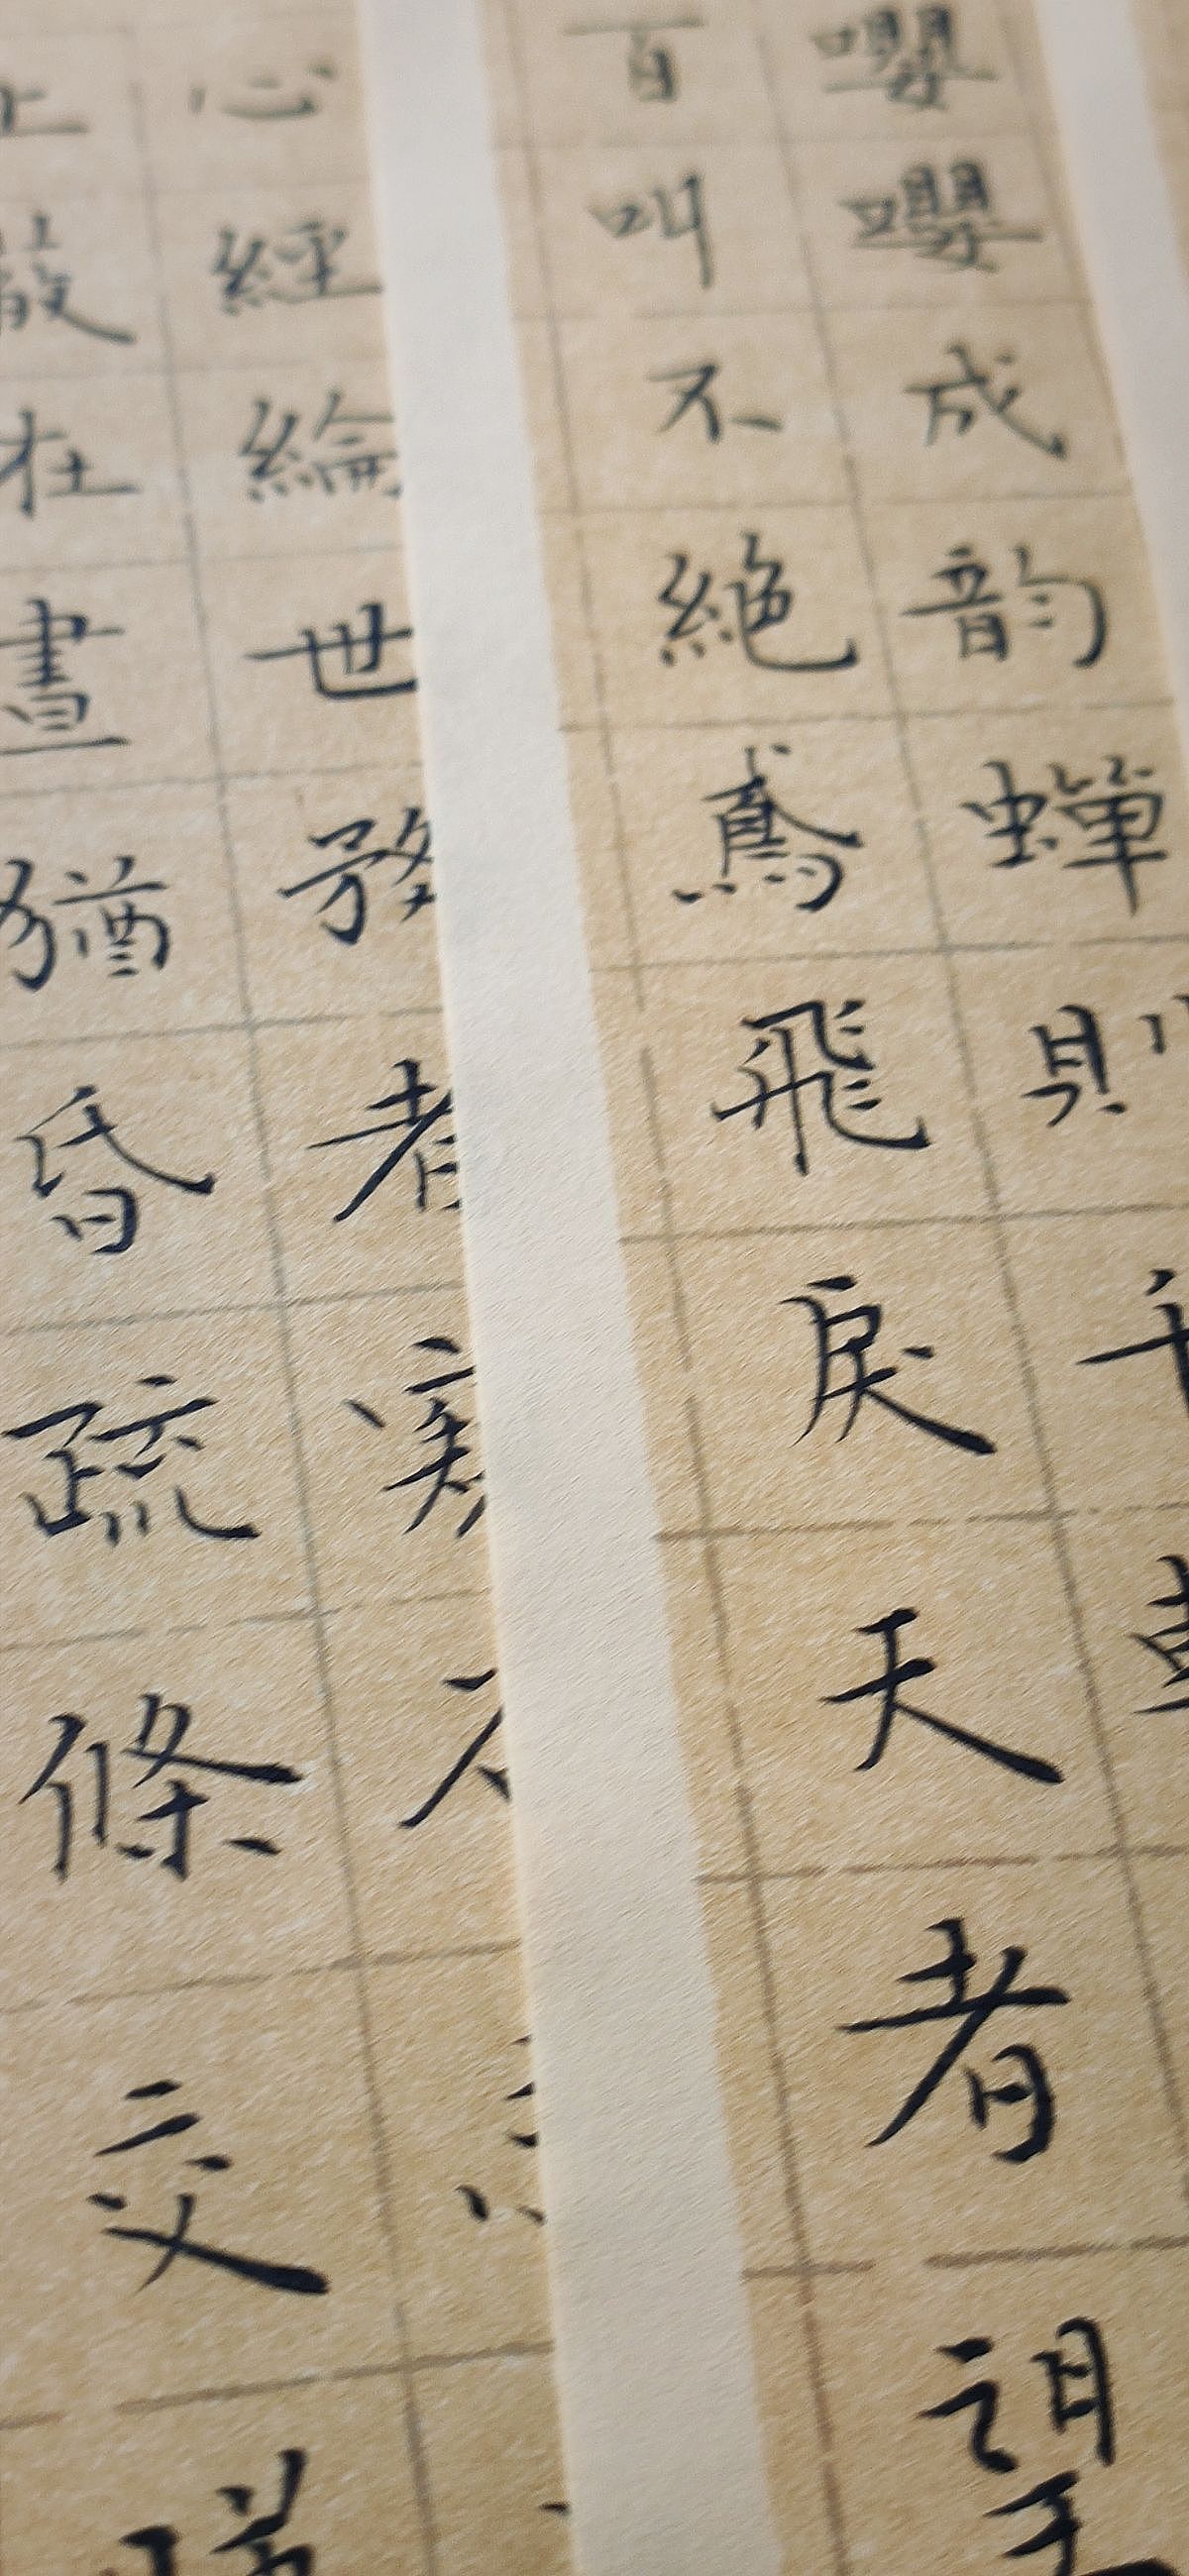 嚶嚶成韵蟬則千
百叫不絕鳶飛戾天者望
心經綸世務者窺
上蔽在晝猶昏疏條交